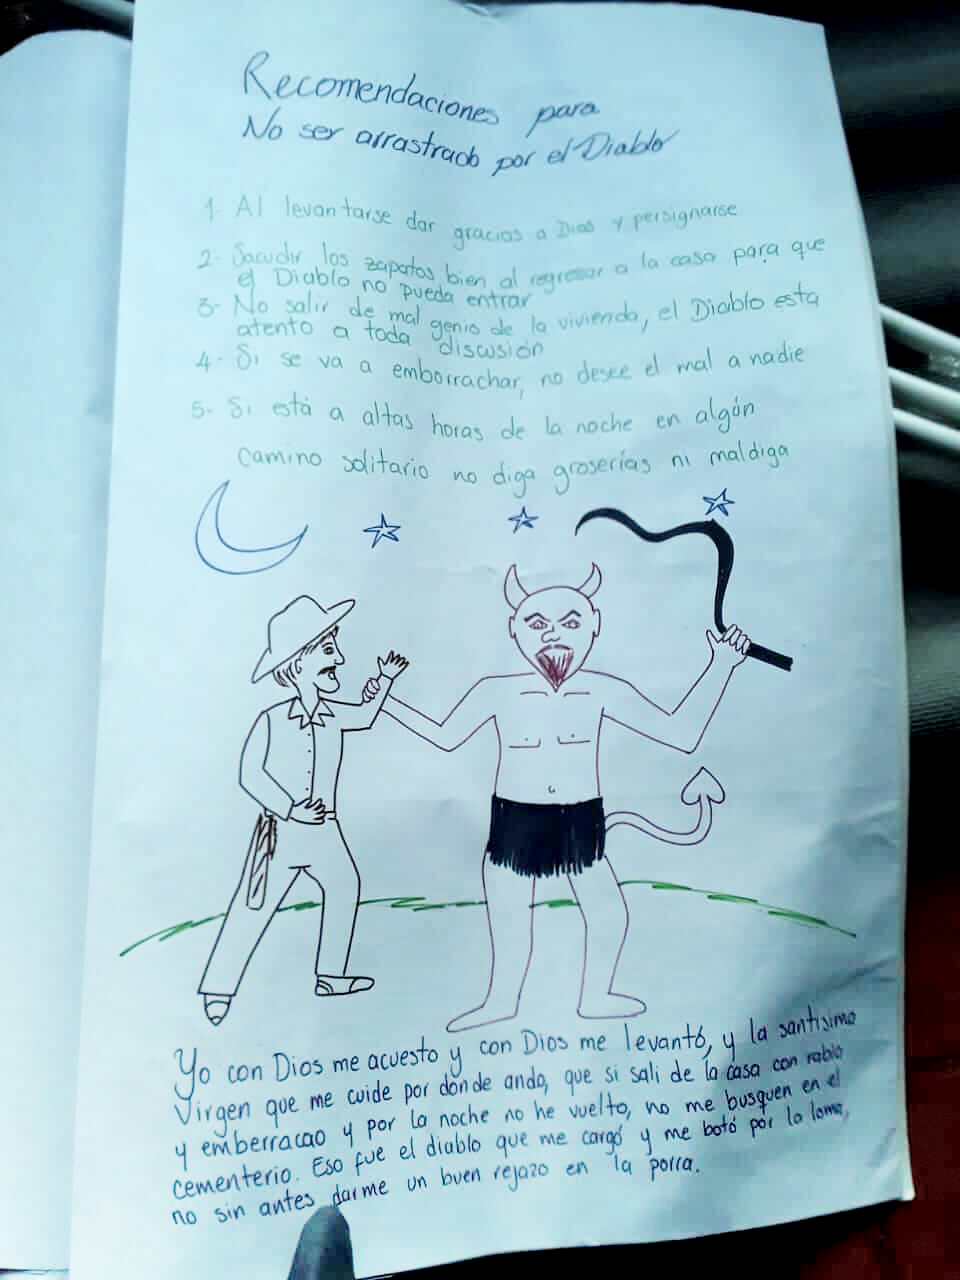 Recomendaciones para
No ser arrastrado por el Diablo
1- Al levantarse dar gracias a Dios y persignarse
2- Sacudir los zapatos bien al regresar a la casa para que
el Diablo no pueda entrar
3- No salir de mal genio de la vivienda, el Diablo esta
atento a toda discusión
4- Si se va a emborrachar, no desee el mal a nadie
5- Si está a altas horas de la noche en algón
camino solitario no diga groserías ni maldiga
Yo con Dios me acuesto y con Dios me levantó, y la santisimo
Virgen que me cuide por donde ando, que si sali de la casa con rabia
y emberracao y por la noche no he vuelto, no me busquen en el
cementerio. Eso fue el diablo que me cargó y me botó por la loma,
no sin antes darme un buen rejazo en la porra.